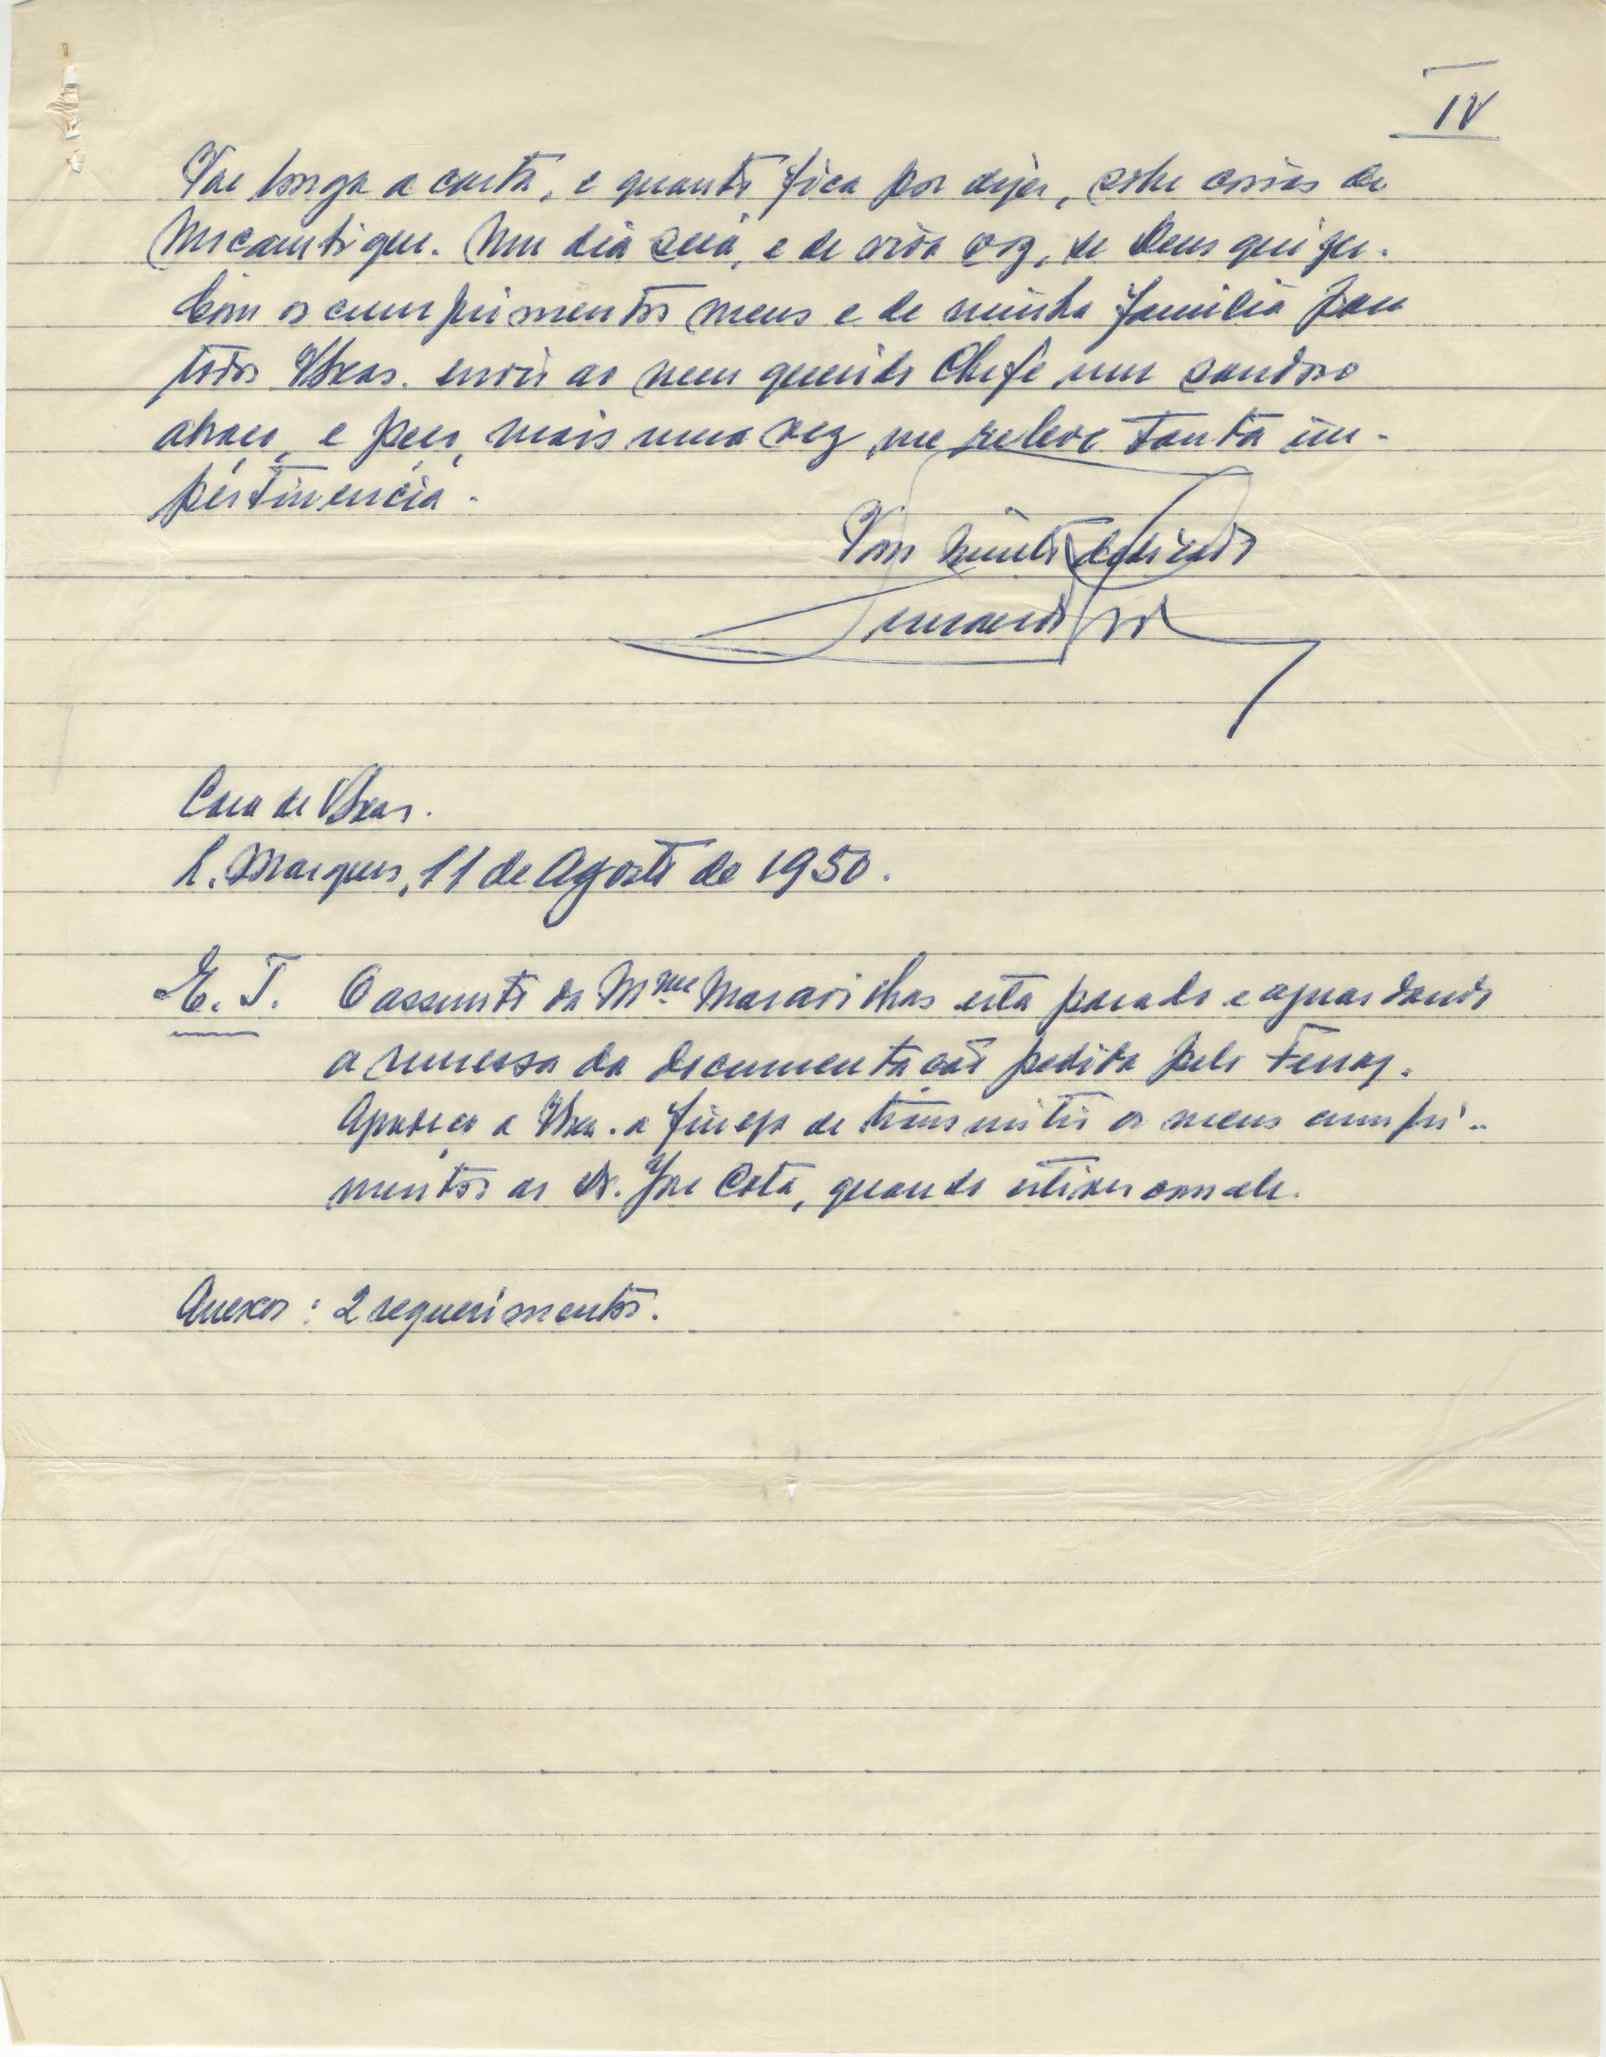 IV
Vae longa a carta, e quanto fica por dizer, sobre coisas de
Mocambique. Um dia será, e de viva voz, se Deus quizer.
Com os cumprimentos meus e de minha familia para
todos VExas. envio ao meu querido Chefe um saudoso
abraço, e peço, mais uma vez, me releve tanta im-
pertinencia.
Vom muito dedicado
Casa de VExas.
L. Marques, 11 de Agosto de 1950.
E. T. O assunto da Mme Maravilhas está parado e aguardando
a remessa da documentação pedida pelo Ferraz.
Agradeço a VExa. a fineza de transmitir os meus cumpri-
mentos ao Dr. José Cota, quando estiver com ele.
Anexos: 2 requerimentos.